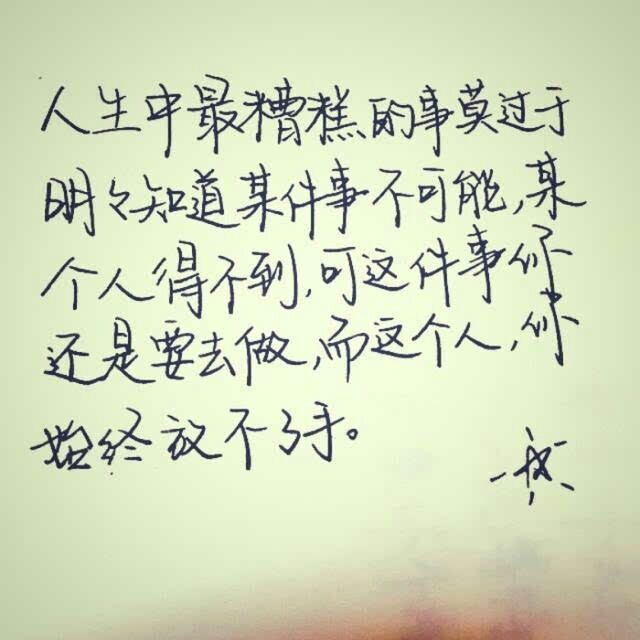 人生中最糟糕的事莫过于
明々知道某件事不可能,某
个人得不到,可这件事你
还是要去做,而这个人,你
始终放不了手。